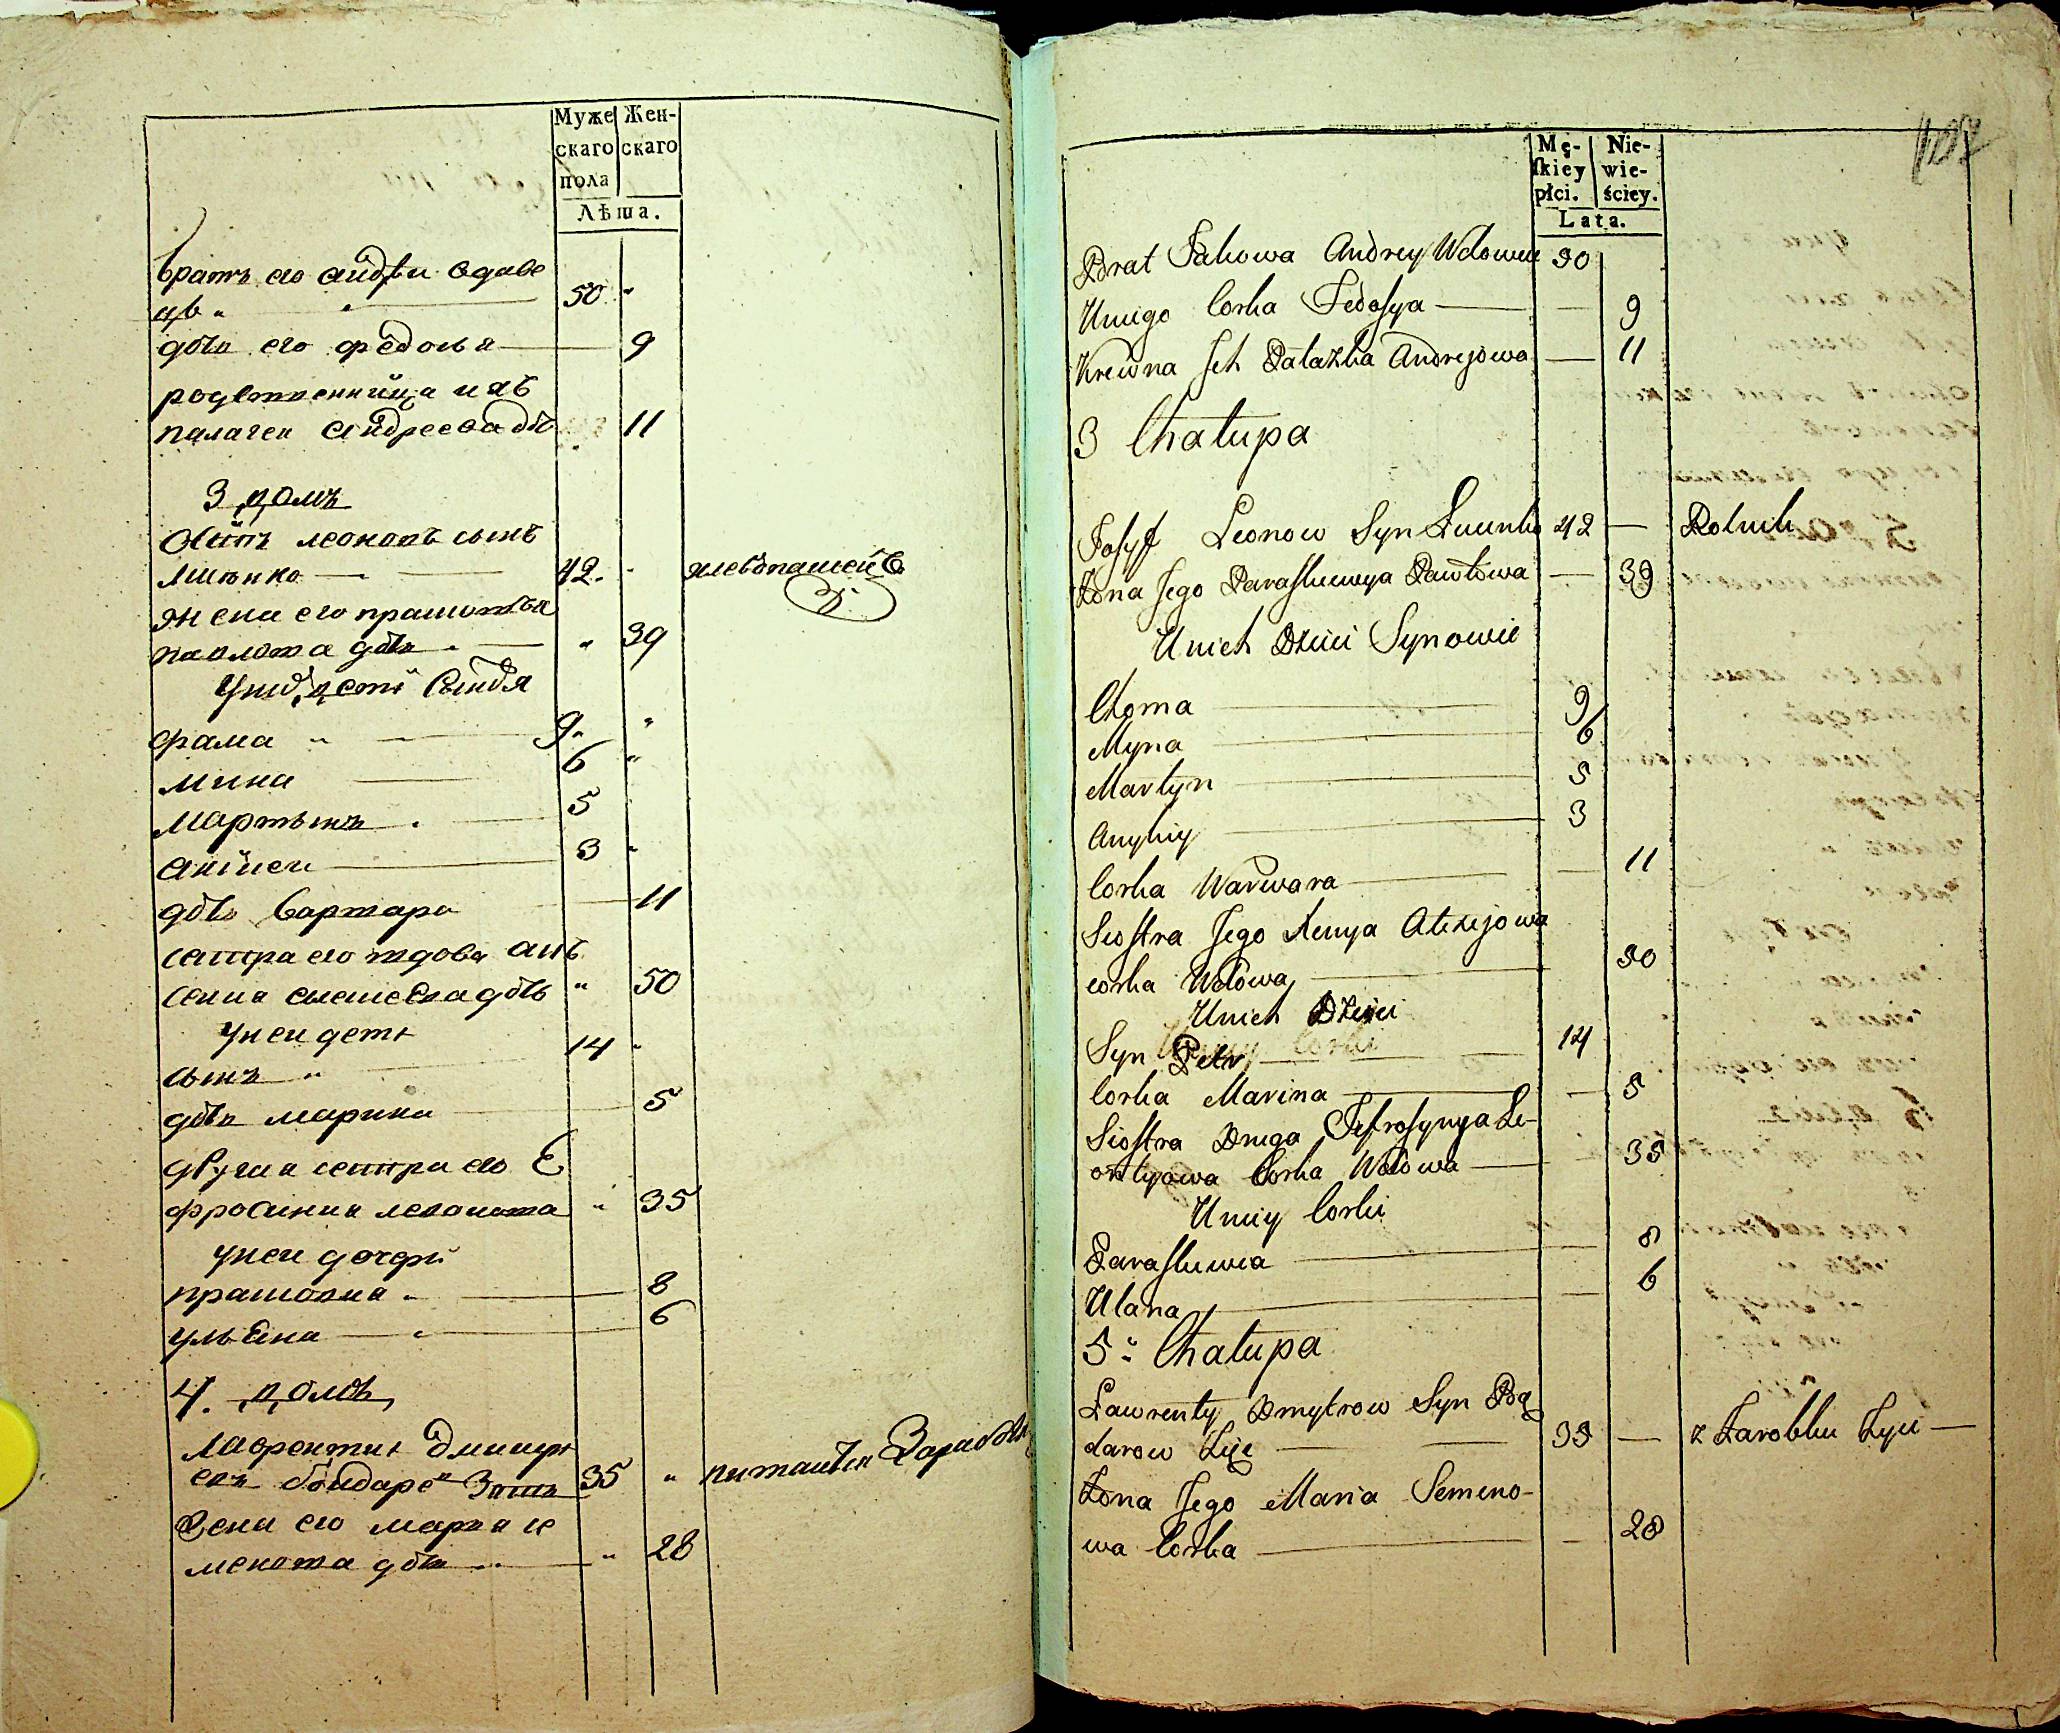 Муже
скаго
пола
Жен-
скаго
Лѣта.
братъ его андреи вдаве
цъ 50
дочь его федосья 9
родственница ихъ
палагея андреева дочь 11
3 домъ
Осипъ леоновъ сынъ
42. хлебопашецъ
жена его прасковья
павлова дочь 39
У них дети Сыновя
фама 9.
мина 6
мартынъ 5
3
дочь варвара 11
сестра его вдова
дочь 50
У неи дети
сынъ 14
дочь марина 5
другая сестра его Е
фросиния леонова 35
У неи дочери
прасковия 8
ульяна 6
4. домъ
лаврентии дмитри
евъ бондаре зять 35 питается Заработк
Жена его мария се
менова дочь 28
107
Mę-
skiey
płci.
Nie-
wie-
ściey.
Lata.
Brat Jakowa Andrey Wdowiec 50
U niego Corka Fedosya 9
Krewna Jch Palazka Andrejowa 11
3 Chałupa
Josyf Leonow Syn 42 — Rolnik
Żona Jego Paraskiewya Pawłowa — 39
U nich Dzieci Synowie
Choma 9
Myna 6
Martyn 5
3
Corka Warwara 11
Siostra Jego Xenya Alexiejowa
corka Wdowa 50
U nich Dzieci
Syn Petr 14
Corka Marina — 5
Siostra Druga Jefrosynya Le-
ontyowa Corka Wdowa — 35
U niey Corki
Paraskiewia 8
Ulana 6
5. Chałupa
Ławrenty Dmytrow Syn Bą
darow Zięć 35 — z Zarobku Żyie —
Żona Jego Maria Semeno-
wa Corka — 28